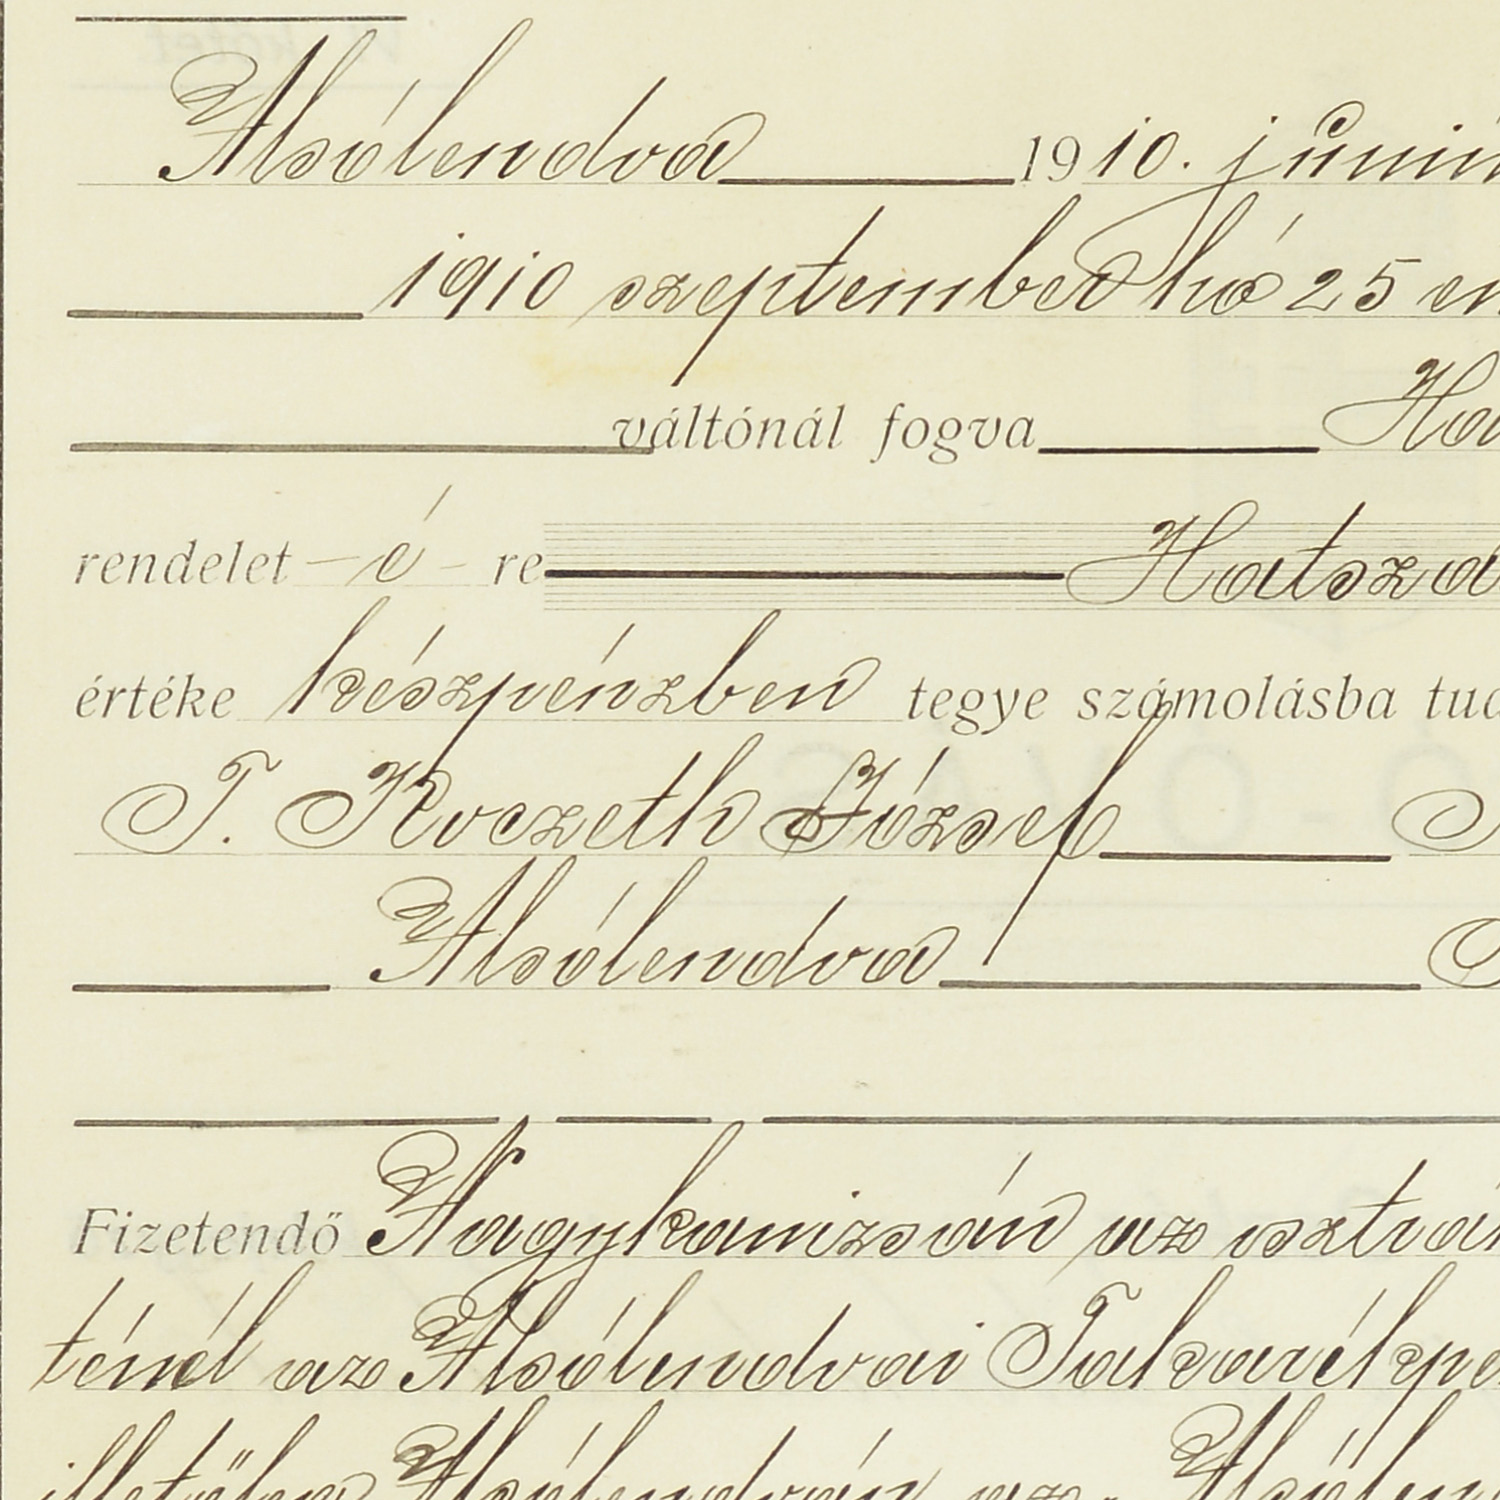 Alsólendva 1910. júni
1910 szeptember hó 25 en
váltónál fogva
rendelet - é - re Hatsza
értéke készpénzben tegye számolásba tud
T. Koczeth József
Alsólendva
Fizetendő Nagykanizsán az osztrá
ténél az Alsólendvai Takarékpé
illetőleg Alsólendván az Alsólen